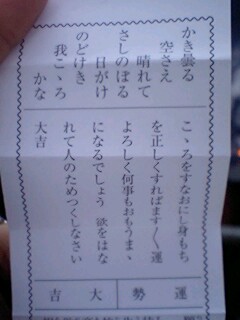 かき曇る
空さえ
晴れて
さしのぼる
日がけ
のどけき
我こゝろ
かな
こゝろをすなおにし身もち
を正しくすればます〳〵運
よろしく何事もおもうまゝ
になるでしょう 欲をはな
れて人のためつくしなさい
大吉
運勢大吉